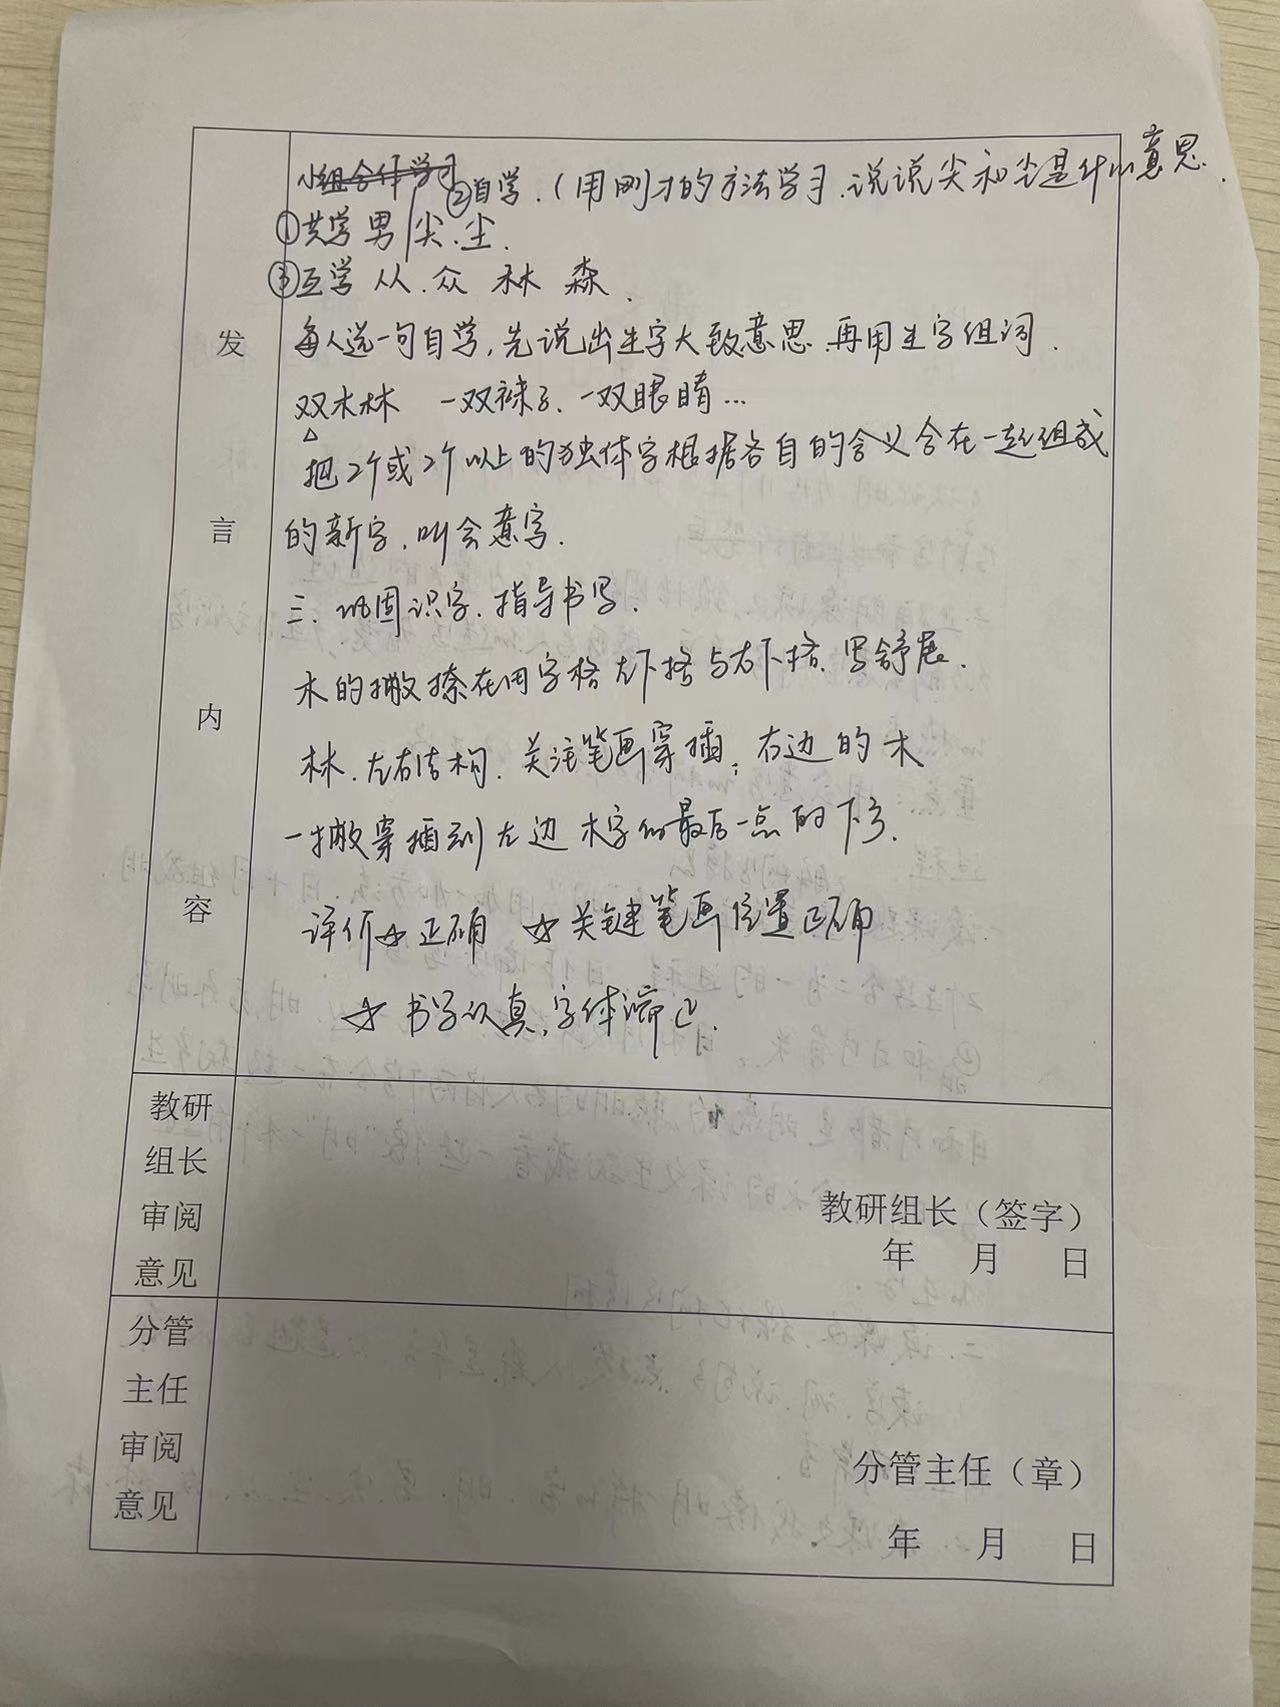 小组合作学习
②自学.(用刚才的方法学习.说说尖和尘是什么意思.
①共学 男 尖.尘.
③互学 从.众 林 森.
每人选一句自学,先说出生字大致意思.再用生字组词.
双木林 一双袜子、一双眼睛…
把2个或2个以上的独体字根据各自的含义合在一起组成
的新字.叫会意字.
三.巩固识字.指导书写.
木的撇捺在田字格左下格与右下格.写舒展.
林.左右结构.关注笔画穿插;右边的木
一撇穿插到左边木字的最后一点的下方.
评价☆正确 ☆关键笔画位置正确
☆书写认真,字体端正.
发
言
内
容
教研
组长
审阅
意见
教研组长（签字）
年 月 日
分管
主任
审阅
意见
分管主任（章）
年 月 日